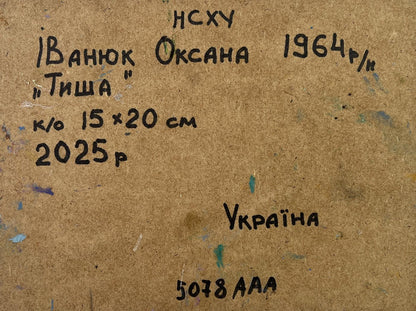 НСХУ
ІВАНЮК ОКСАНА 1964 р/н
„ТИША"
к/о 15×20 см
2025 р
УКРАЇНА
5078 ААА